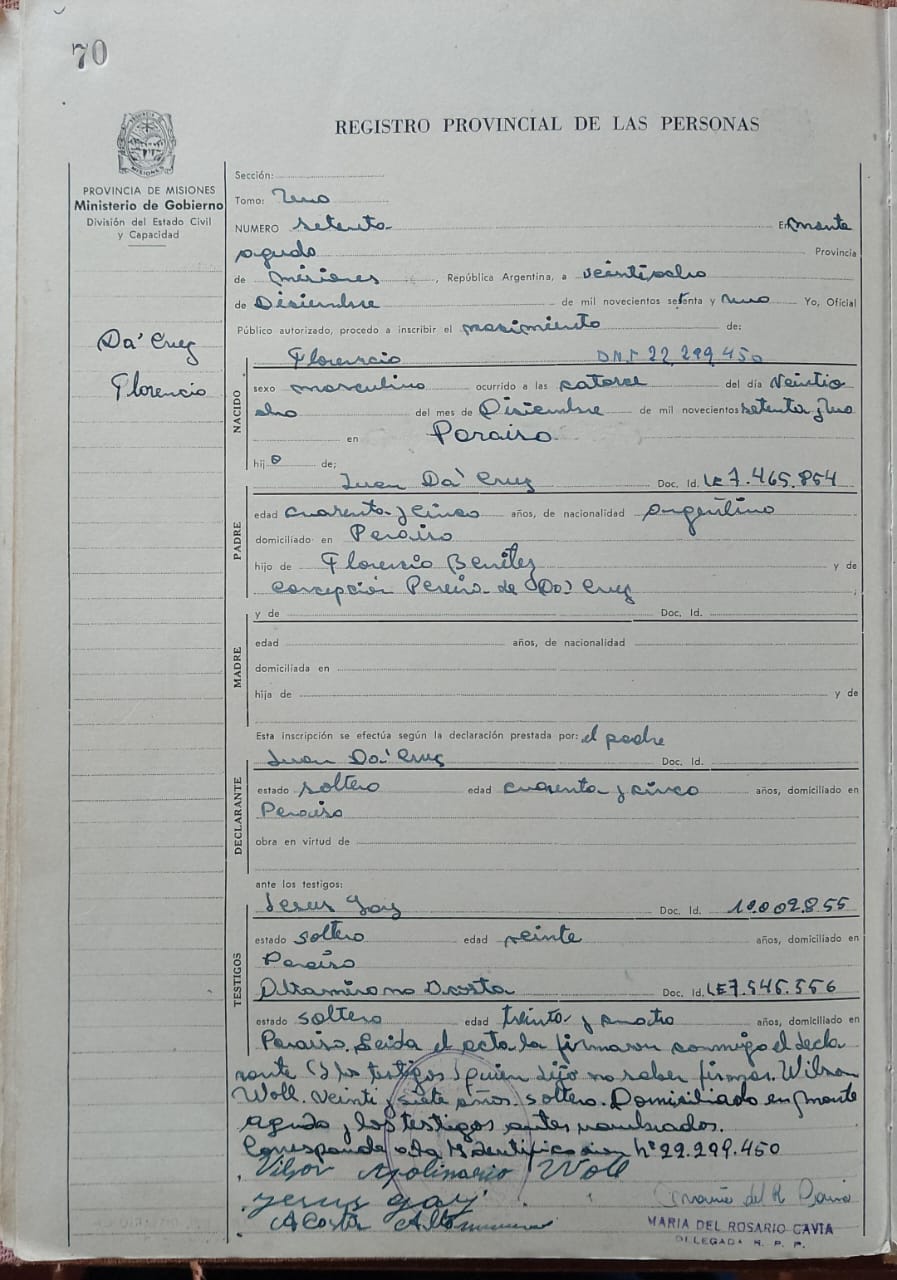 70
REGISTRO PROVINCIAL DE LAS PERSONAS
MISIONES
PROVINCIA DE MISIONES
Ministerio de Gobierno
División del Estado Civil
y Capacidad
Da' Cruz
Florencio
Sección:
Tomo: Uno
NUMERO setenta En monte
agudo Provincia
de misiones, República Argentina, a veintiocho
de Disiembre de mil novecientos setenta y uno Yo, Oficial
Público autorizado, procedo a inscribir el nasimiento de:
NACIDO
Florencio DNI 22.299.450
sexo masculino ocurrido a las catorce del día Veintio
cho del mes de Disiembre de mil novecientos setenta y uno
en Paraiso
hijo de;
PADRE
Juan Da' Cruz Doc. Id. LE 7.465.854
edad cuarenta y cinco años, de nacionalidad argentino
domiciliado en Paraiso
hijo de Florencio Benitez y de
concepción Pereira de Da' Cruz
MADRE
y de Doc. Id.
edad años, de nacionalidad
domiciliada en
hija de y de
Esta inscripción se efectúa según la declaración prestada por: el padre
DECLARANTE
Juan Da' Cruz Doc. Id.
estado soltero edad cuarenta y cinco años, domiciliado en
Paraiso
obra en virtud de
ante los testigos:
TESTIGOS
Jesus Gay Doc. Id. 10.002.855
estado soltero edad veinte años, domiciliado en
Paraiso
Altamirano Acosta Doc. Id. LE 7.545.556
estado soltero edad treinta y cuatro años, domiciliado en
Paraiso. Leida el acta la firmaron conmigo el decla
rante (y los testigos) quien dijo no saber firmar. Wilson
Woll. veinti y siete años. soltero. Domiciliado en monte
agudo y los testigos antes nombrados.
Corresponde a la M. identificacion Nº 22.299.450
Vilson Apolinario Woll
Jesus Gay
Acosta
MARIA DEL ROSARIO CAVIA
DELEGADA R. P. P.